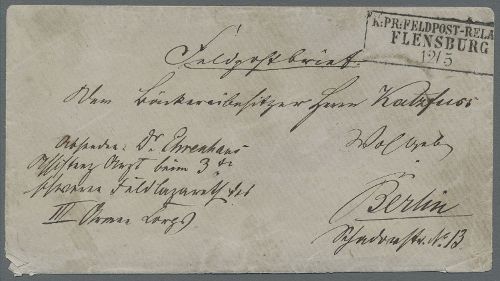 K:PR:FELDPOST-RELA
FLENSBURG
12/5
Feldpostbrief.
Dem Bäckereibesitzer Herrn Katzfuss
Wolgeb
Absender: Dr Ehrenhaus
Assistenz Arzt beim 3ten
schweren Feldlazareth des
III Armee Corps
Berlin
Schadowstr. No 13